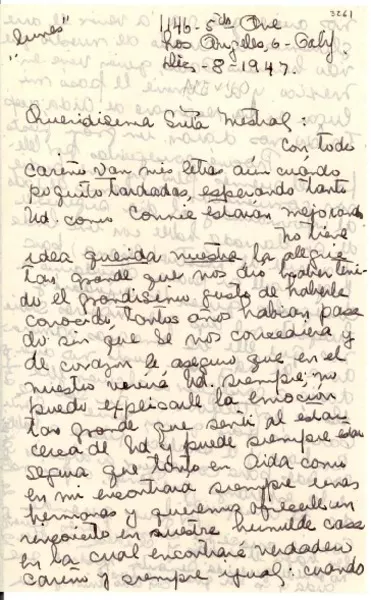 3261
1146-5da Ave
"lunes" Los Angeles, 6 - Calif
Dic - 8 - 1947.
Queridisima Srita Mistral:
Con todo
cariño van mis letras aún cuándo
poquito tardadas, esperando tanto
Ud. como Connie estarán mejorando
no tiene
idea querida nuestra la alegria
tan grande que nos dio haber teni-
do el grandisimo gusto de haberla
conocido, tantos años habian pasa
do sin que se nos concediera y
de corazon le aseguro que en el
nuestro vivirá Ud. siempre; no
puedo explicarle la emoción
tan grande que senti al estar
cerca de Ud y puede siempre estar
segura que tanto en Aida como
en mi encontrará siempre unas
hermanas y queremos ofrecerle un
rinconcito en nuestra humilde casa
en la cual encontrará verdadero
cariño y siempre igual; cuando